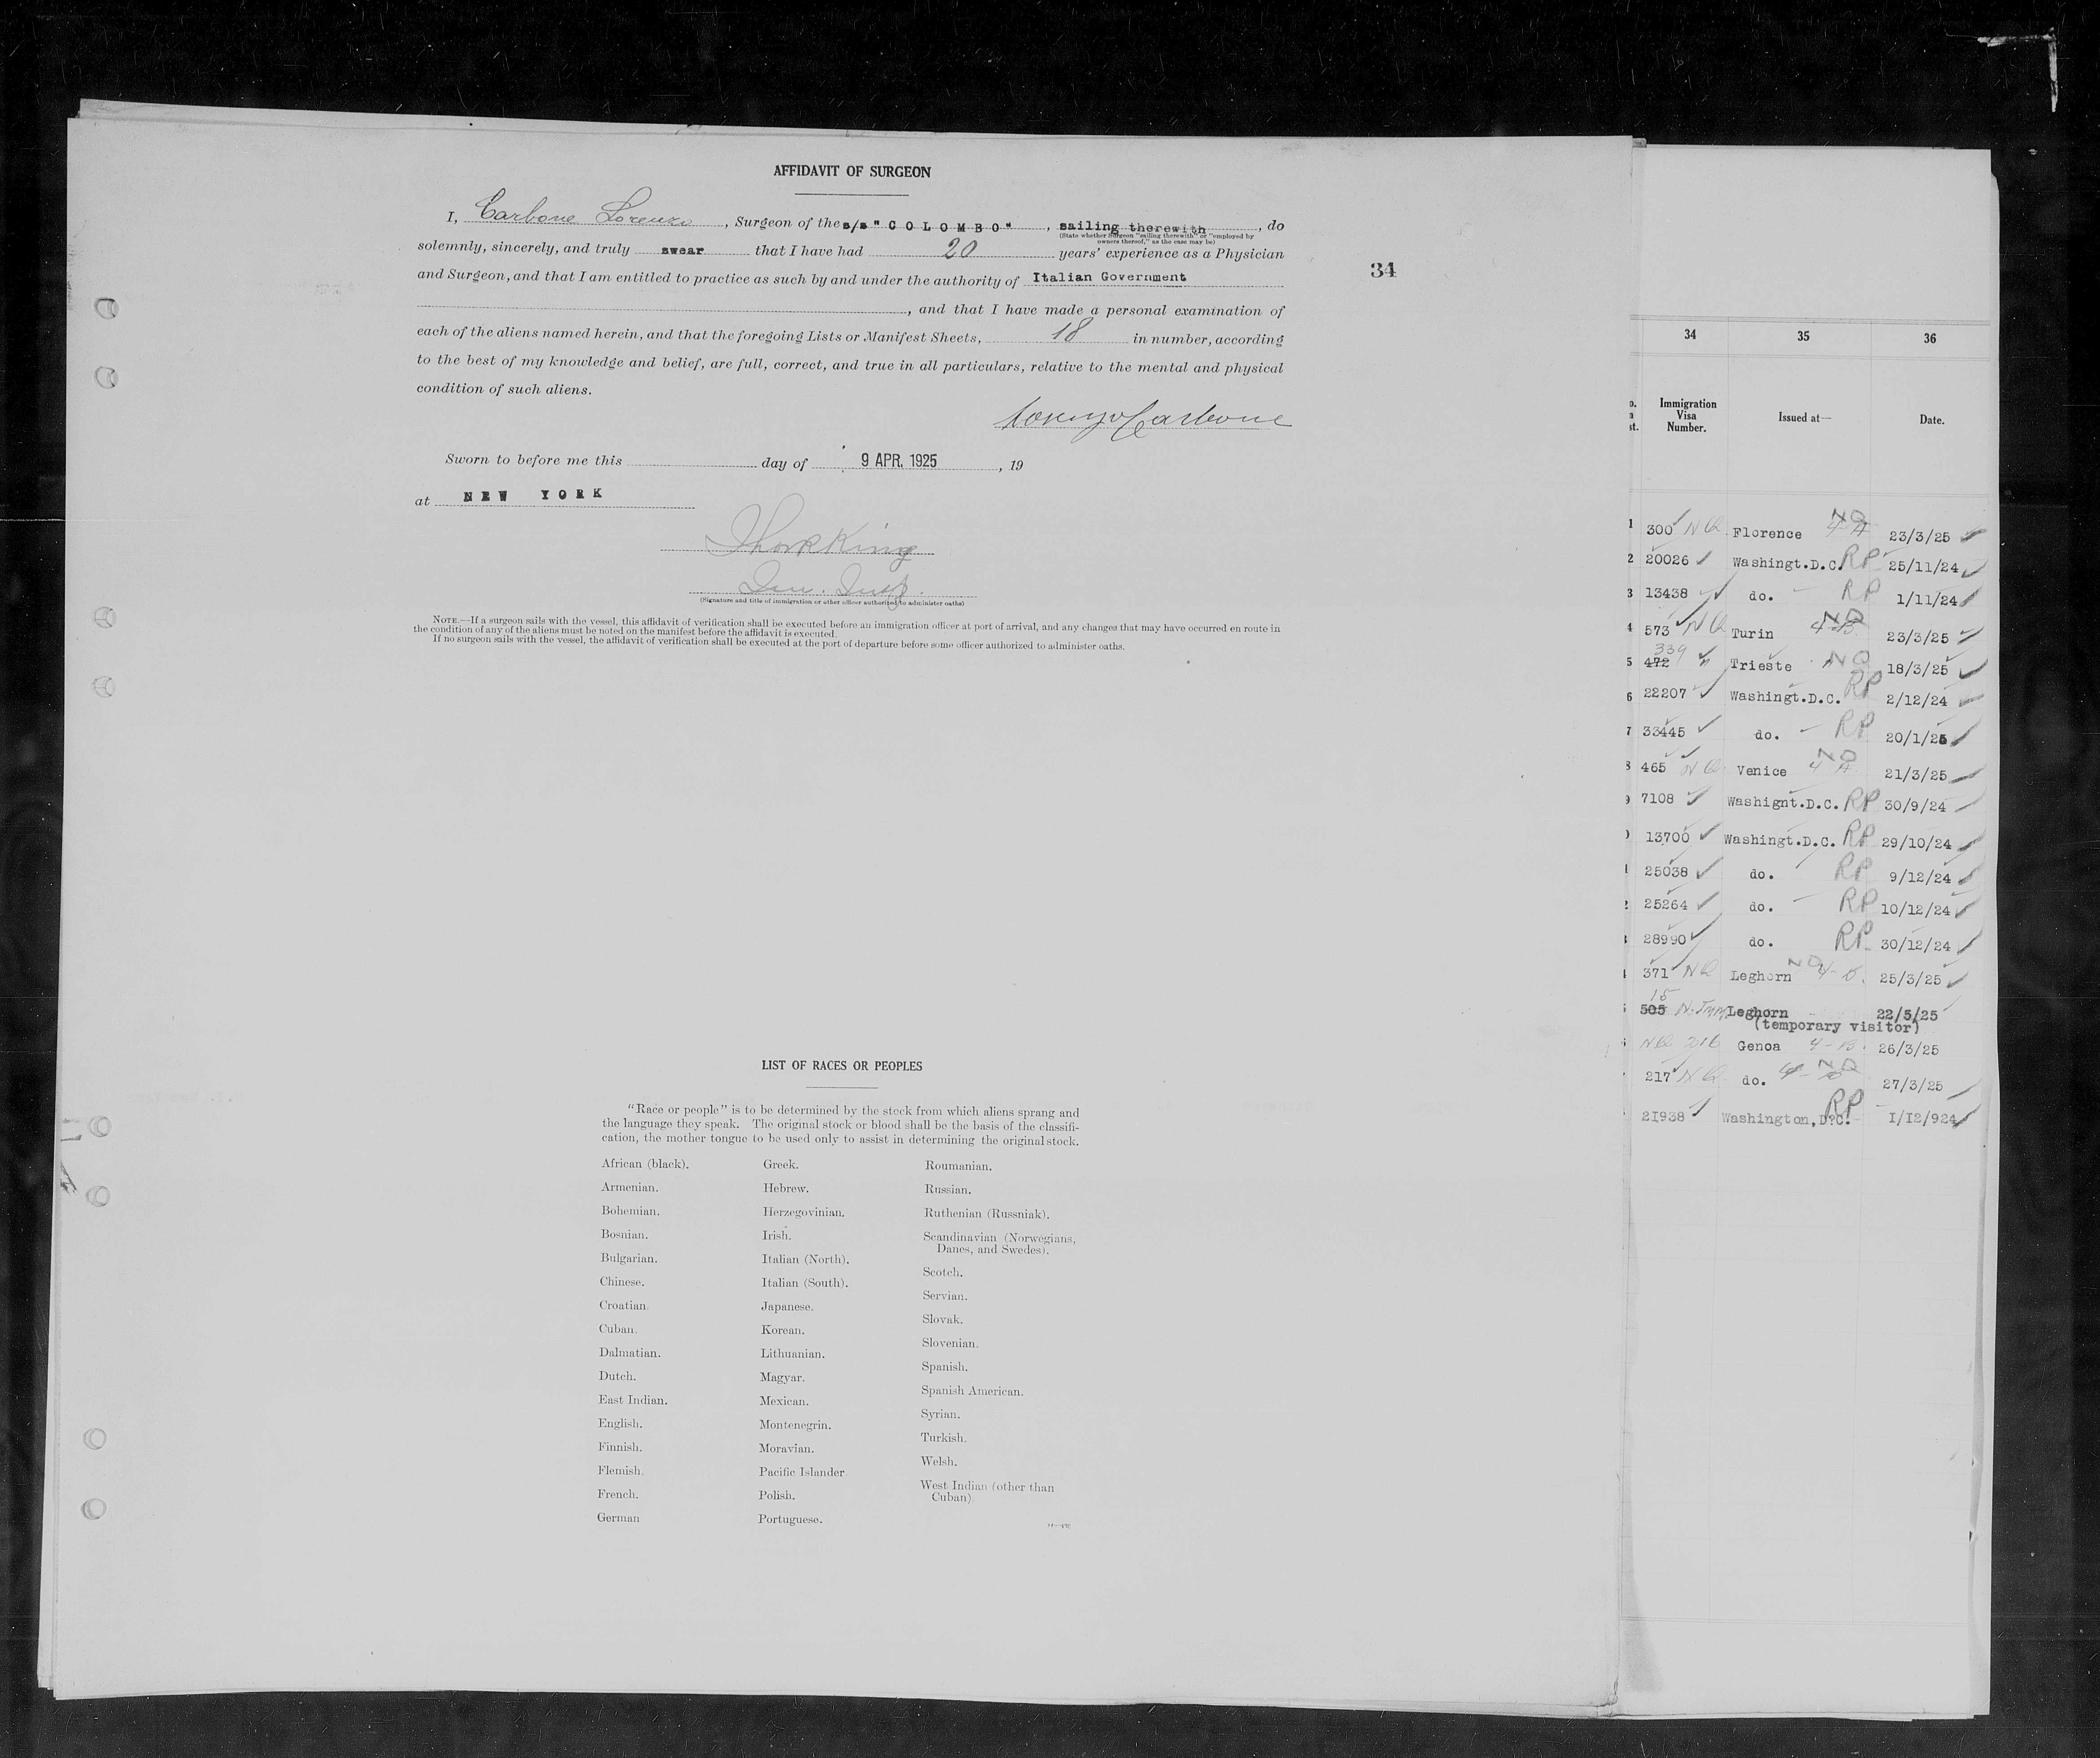 AFFIDAVIT OF SURGEON
I, Carbone Lorenzo, Surgeon of the s/s "COLOMBO", sailing therewith, do
(State whether Surgeon "sailing therewith" or "employed by
owners thereof," as the case may be)
solemnly, sincerely, and truly swear that I have had 20 years' experience as a Physician
and Surgeon, and that I am entitled to practice as such by and under the authority of Italian Government
, and that I have made a personal examination of
each of the aliens named herein, and that the foregoing Lists or Manifest Sheets, 18 in number, according
to the best of my knowledge and belief, are full, correct, and true in all particulars, relative to the mental and physical
condition of such aliens.
Lorenzo Carbone
Sworn to before me this day of 9 APR. 1925, 19
at NEW YORK
Imm. Insp.
(Signature and title of immigration or other officer authorized to administer oaths)
NOTE.—If a surgeon sails with the vessel, this affidavit of verification shall be executed before an immigration officer at port of arrival, and any changes that may have occurred en route in
the condition of any of the aliens must be noted on the manifest before the affidavit is executed.
If no surgeon sails with the vessel, the affidavit of verification shall be executed at the port of departure before some officer authorized to administer oaths.
34
LIST OF RACES OR PEOPLES
"Race or people" is to be determined by the stock from which aliens sprang and
the language they speak. The original stock or blood shall be the basis of the classifi-
cation, the mother tongue to be used only to assist in determining the original stock.
African (black).
Armenian.
Bohemian.
Bosnian.
Bulgarian.
Chinese.
Croatian.
Cuban.
Dalmatian.
Dutch.
East Indian.
English.
Finnish.
Flemish.
French.
German
Greek.
Hebrew.
Herzegovinian.
Irish.
Italian (North).
Italian (South).
Japanese.
Korean.
Lithuanian.
Magyar.
Mexican.
Montenegrin.
Moravian.
Pacific Islander
Polish.
Portuguese.
Roumanian.
Russian.
Ruthenian (Russniak).
Scandinavian (Norwegians,
Danes, and Swedes).
Scotch.
Servian.
Slovak.
Slovenian.
Spanish.
Spanish American.
Syrian.
Turkish.
Welsh.
West Indian (other than
Cuban)
34 35 36
Immigration
Visa
Number.
Issued at—
Date.
1 300 NQ Florence NQ 4-A 23/3/25
2 20026 Washingt.D.C. RP 25/11/24
3 13438 do. RP 1/11/24
4 573 NQ Turin NQ 4-B 23/3/25
339
5 472 " Trieste " NQ 18/3/25
6 22207 Washingt.D.C. RP 2/12/24
7 33445 do. RP 20/1/25
8 465 NQ Venice NQ 4-A 21/3/25
9 7108 Washignt.D.C. RP 30/9/24
13700 Washingt.D.C. RP 29/10/24
25038 do. RP 9/12/24
25264 do. RP 10/12/24
28990 do. RP 30/12/24
371 NQ Leghorn NQ 4-B. 25/3/25
15
505 Leghorn 22/5/25
(temporary visitor)
NQ 216 Genoa 4-B. 26/3/25
217 NQ do. NQ 27/3/25
21938 Washington,D?C. RP 1/12/924